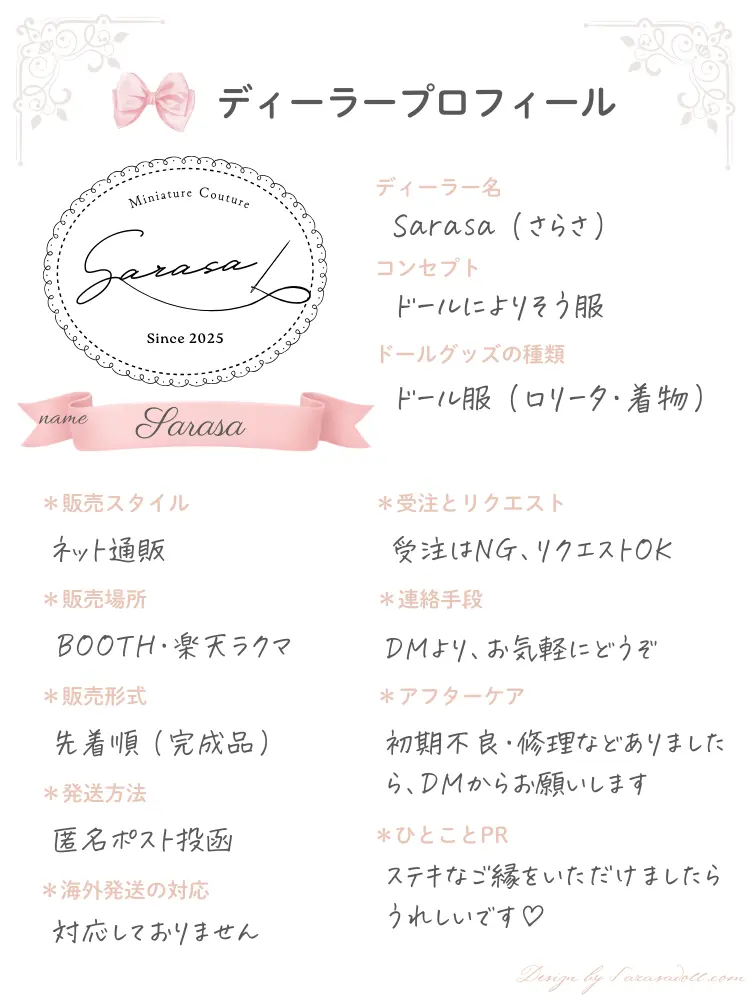 ディーラープロフィール
Miniature Couture
Sarasa
Since 2025
name
Sarasa
ディーラー名
Sarasa（さらさ）
コンセプト
ドールによりそう服
ドールグッズの種類
ドール服（ロリータ・着物）
＊販売スタイル
ネット通販
＊販売場所
BOOTH・楽天ラクマ
＊販売形式
先着順（完成品）
＊発送方法
匿名ポスト投函
＊海外発送の対応
対応しておりません
＊受注とリクエスト
受注はNG、リクエストOK
＊連絡手段
DMより、お気軽にどうぞ
＊アフターケア
初期不良・修理などありました
ら、DMからお願いします
＊ひとことPR
ステキなご縁をいただけましたら
うれしいです♡
Design by Sarasadoll.com